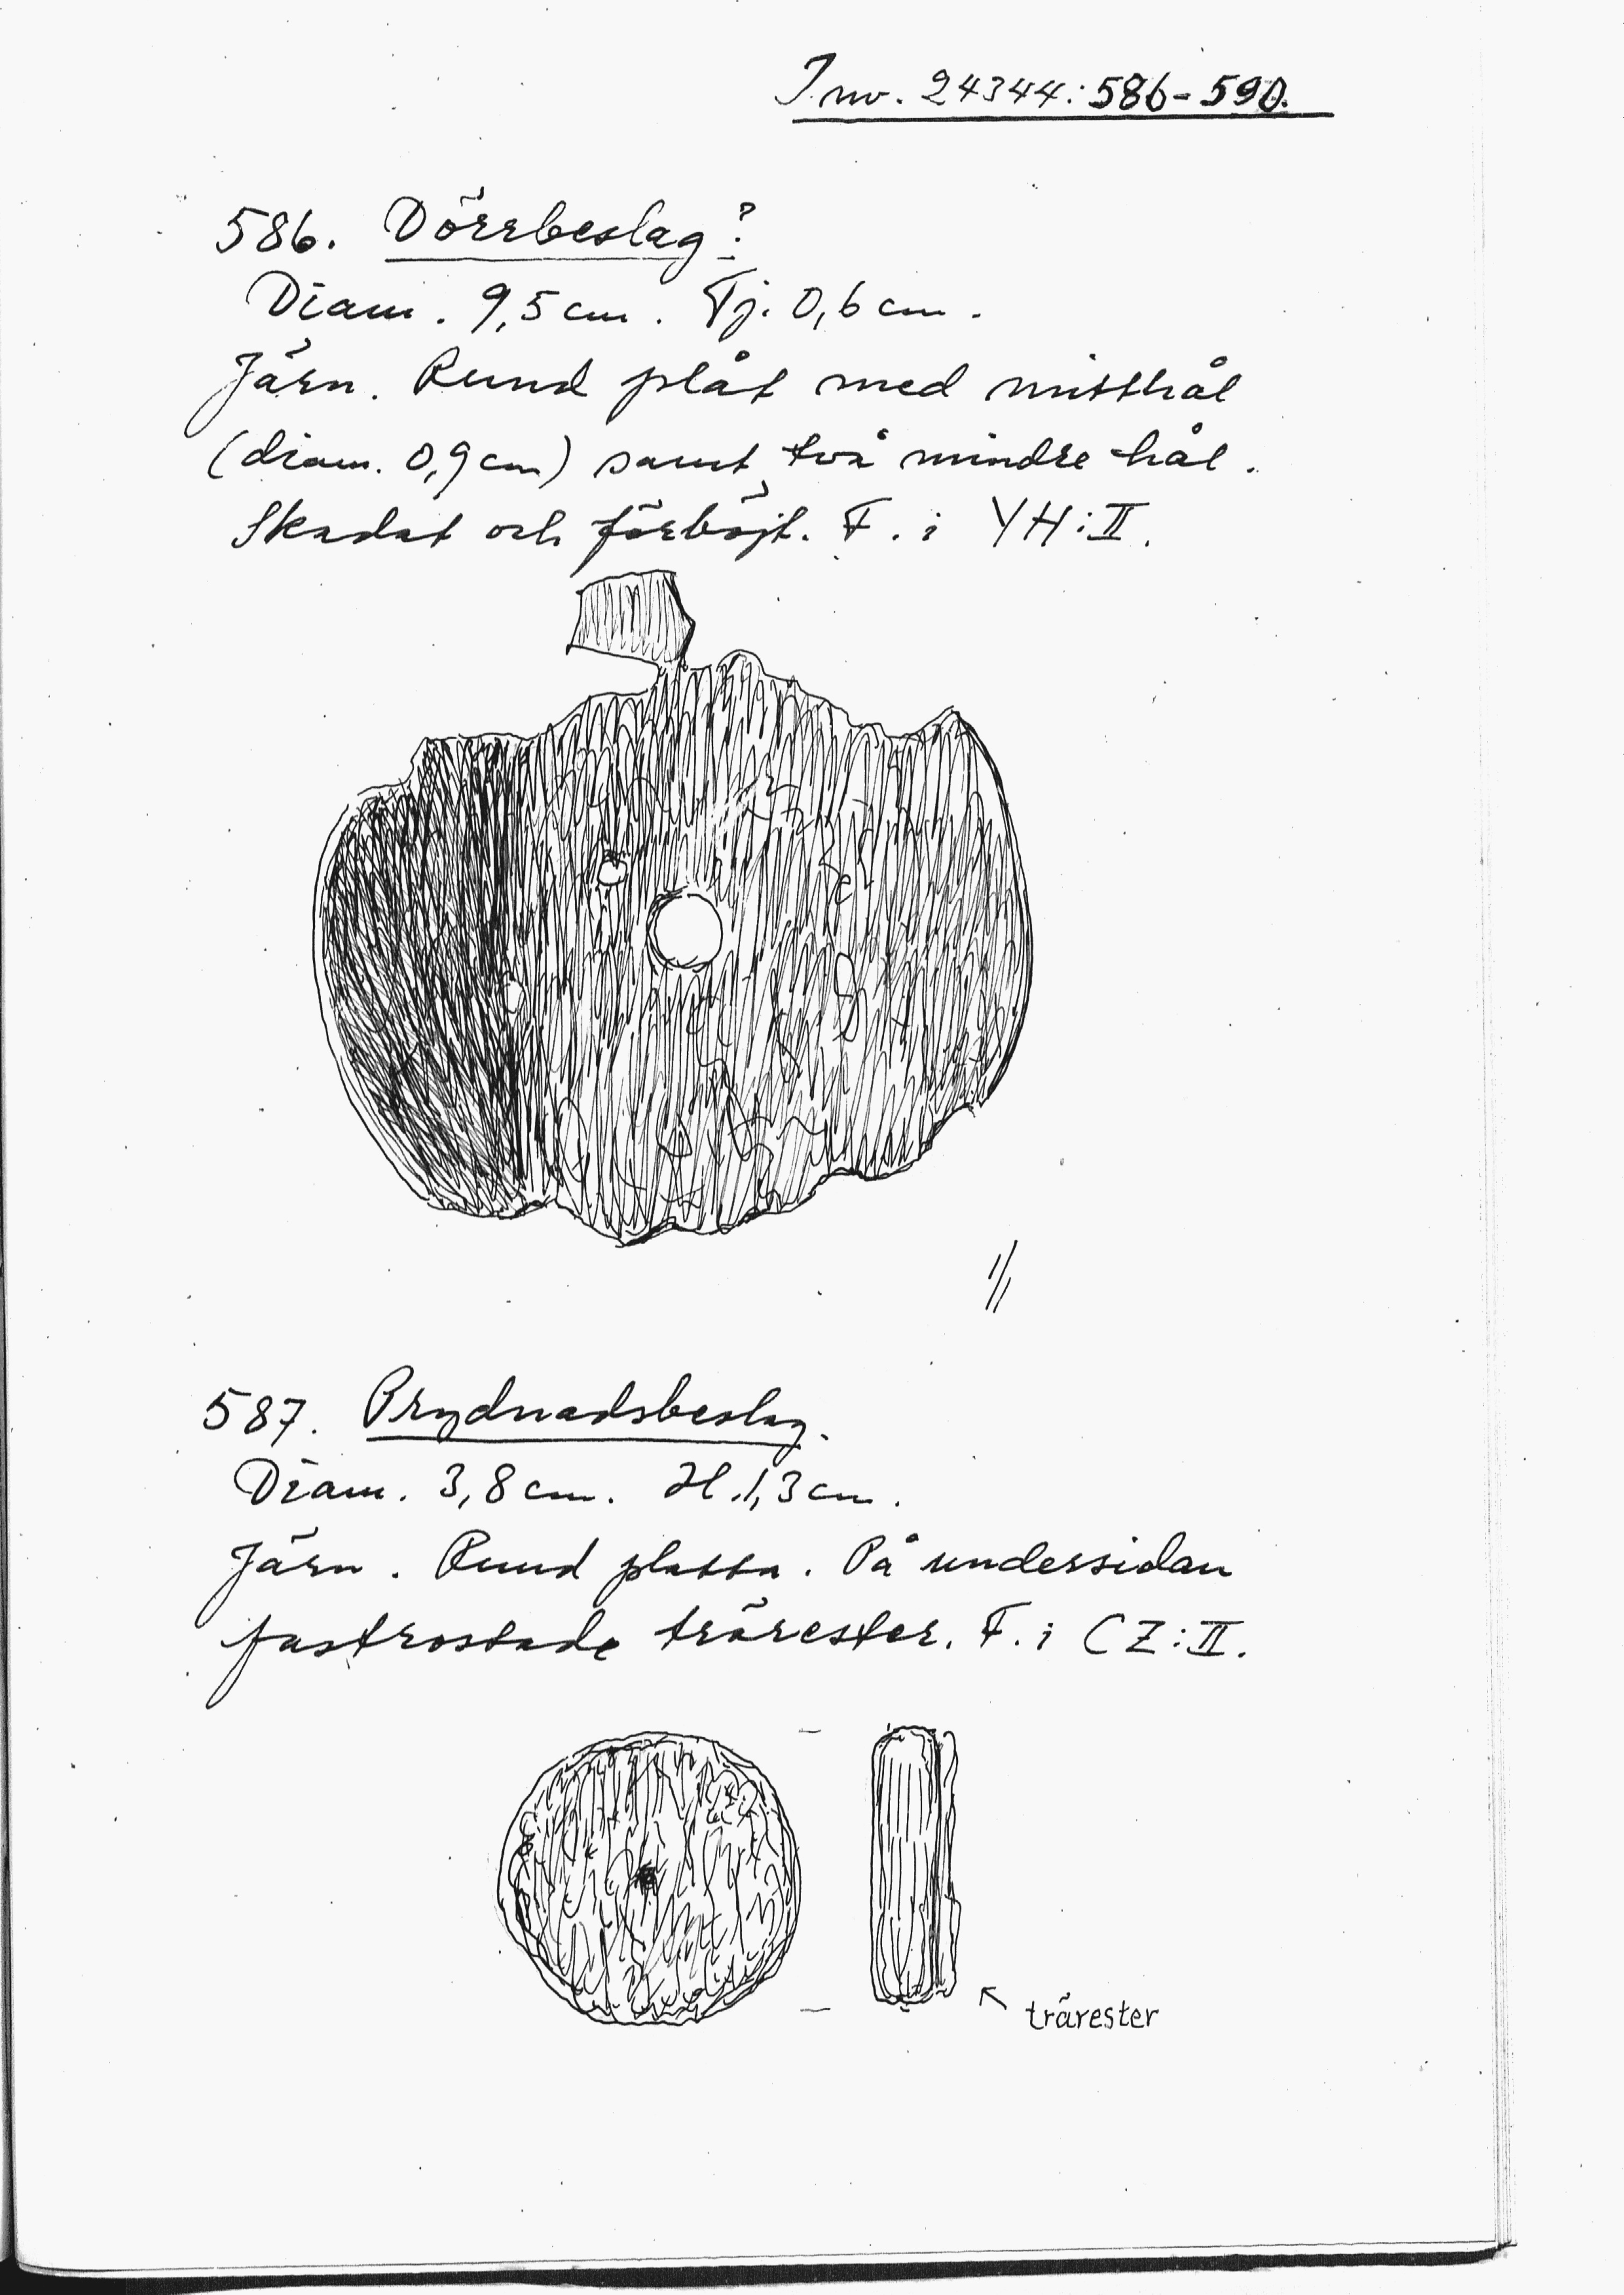 Inv. 24344:586-590.
586. Dörrbeslag?
Diam. 9,5 cm. Tj. 0,6 cm.
Järn. Rund plåt med mitthål
(diam. 0,9 cm) samt två mindre hål.
Skadat och förböjt. F. i YH:II.
1/1
587. Prydnadsbeslag.
Diam. 3,8 cm. H. 1,3 cm.
Järn. Rund platta. På undersidan
fastrostade trärester. F. i CZ:II.
trärester